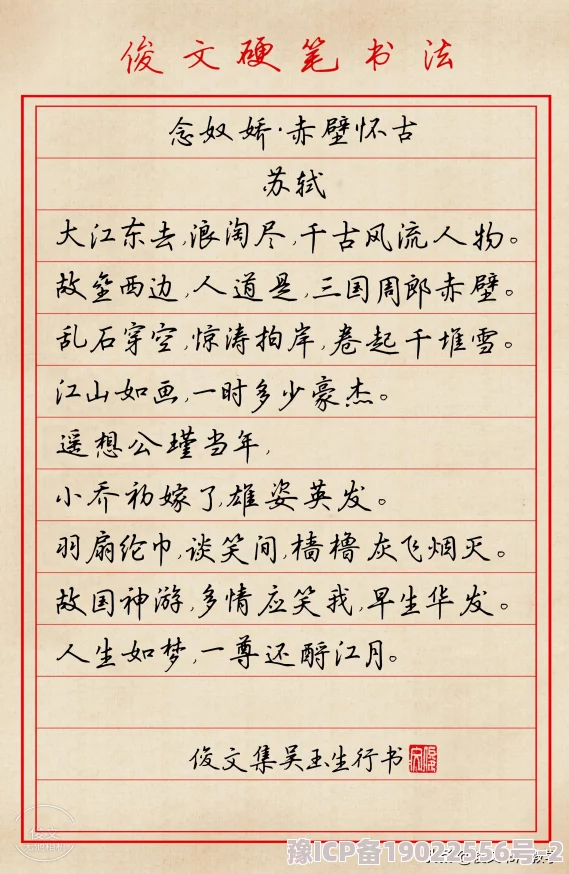 俊文硬笔书法
念奴娇·赤壁怀古
苏轼
大江东去,浪淘尽,千古风流人物。
故垒西边,人道是,三国周郎赤壁。
乱石穿空,惊涛拍岸,卷起千堆雪。
江山如画,一时多少豪杰。
遥想公瑾当年,
小乔初嫁了,雄姿英发。
羽扇纶巾,谈笑间,樯橹灰飞烟灭。
故国神游,多情应笑我,早生华发。
人生如梦,一尊还酹江月。
俊文集吴玉生行书
俊文
豫ICP备19022556号-2